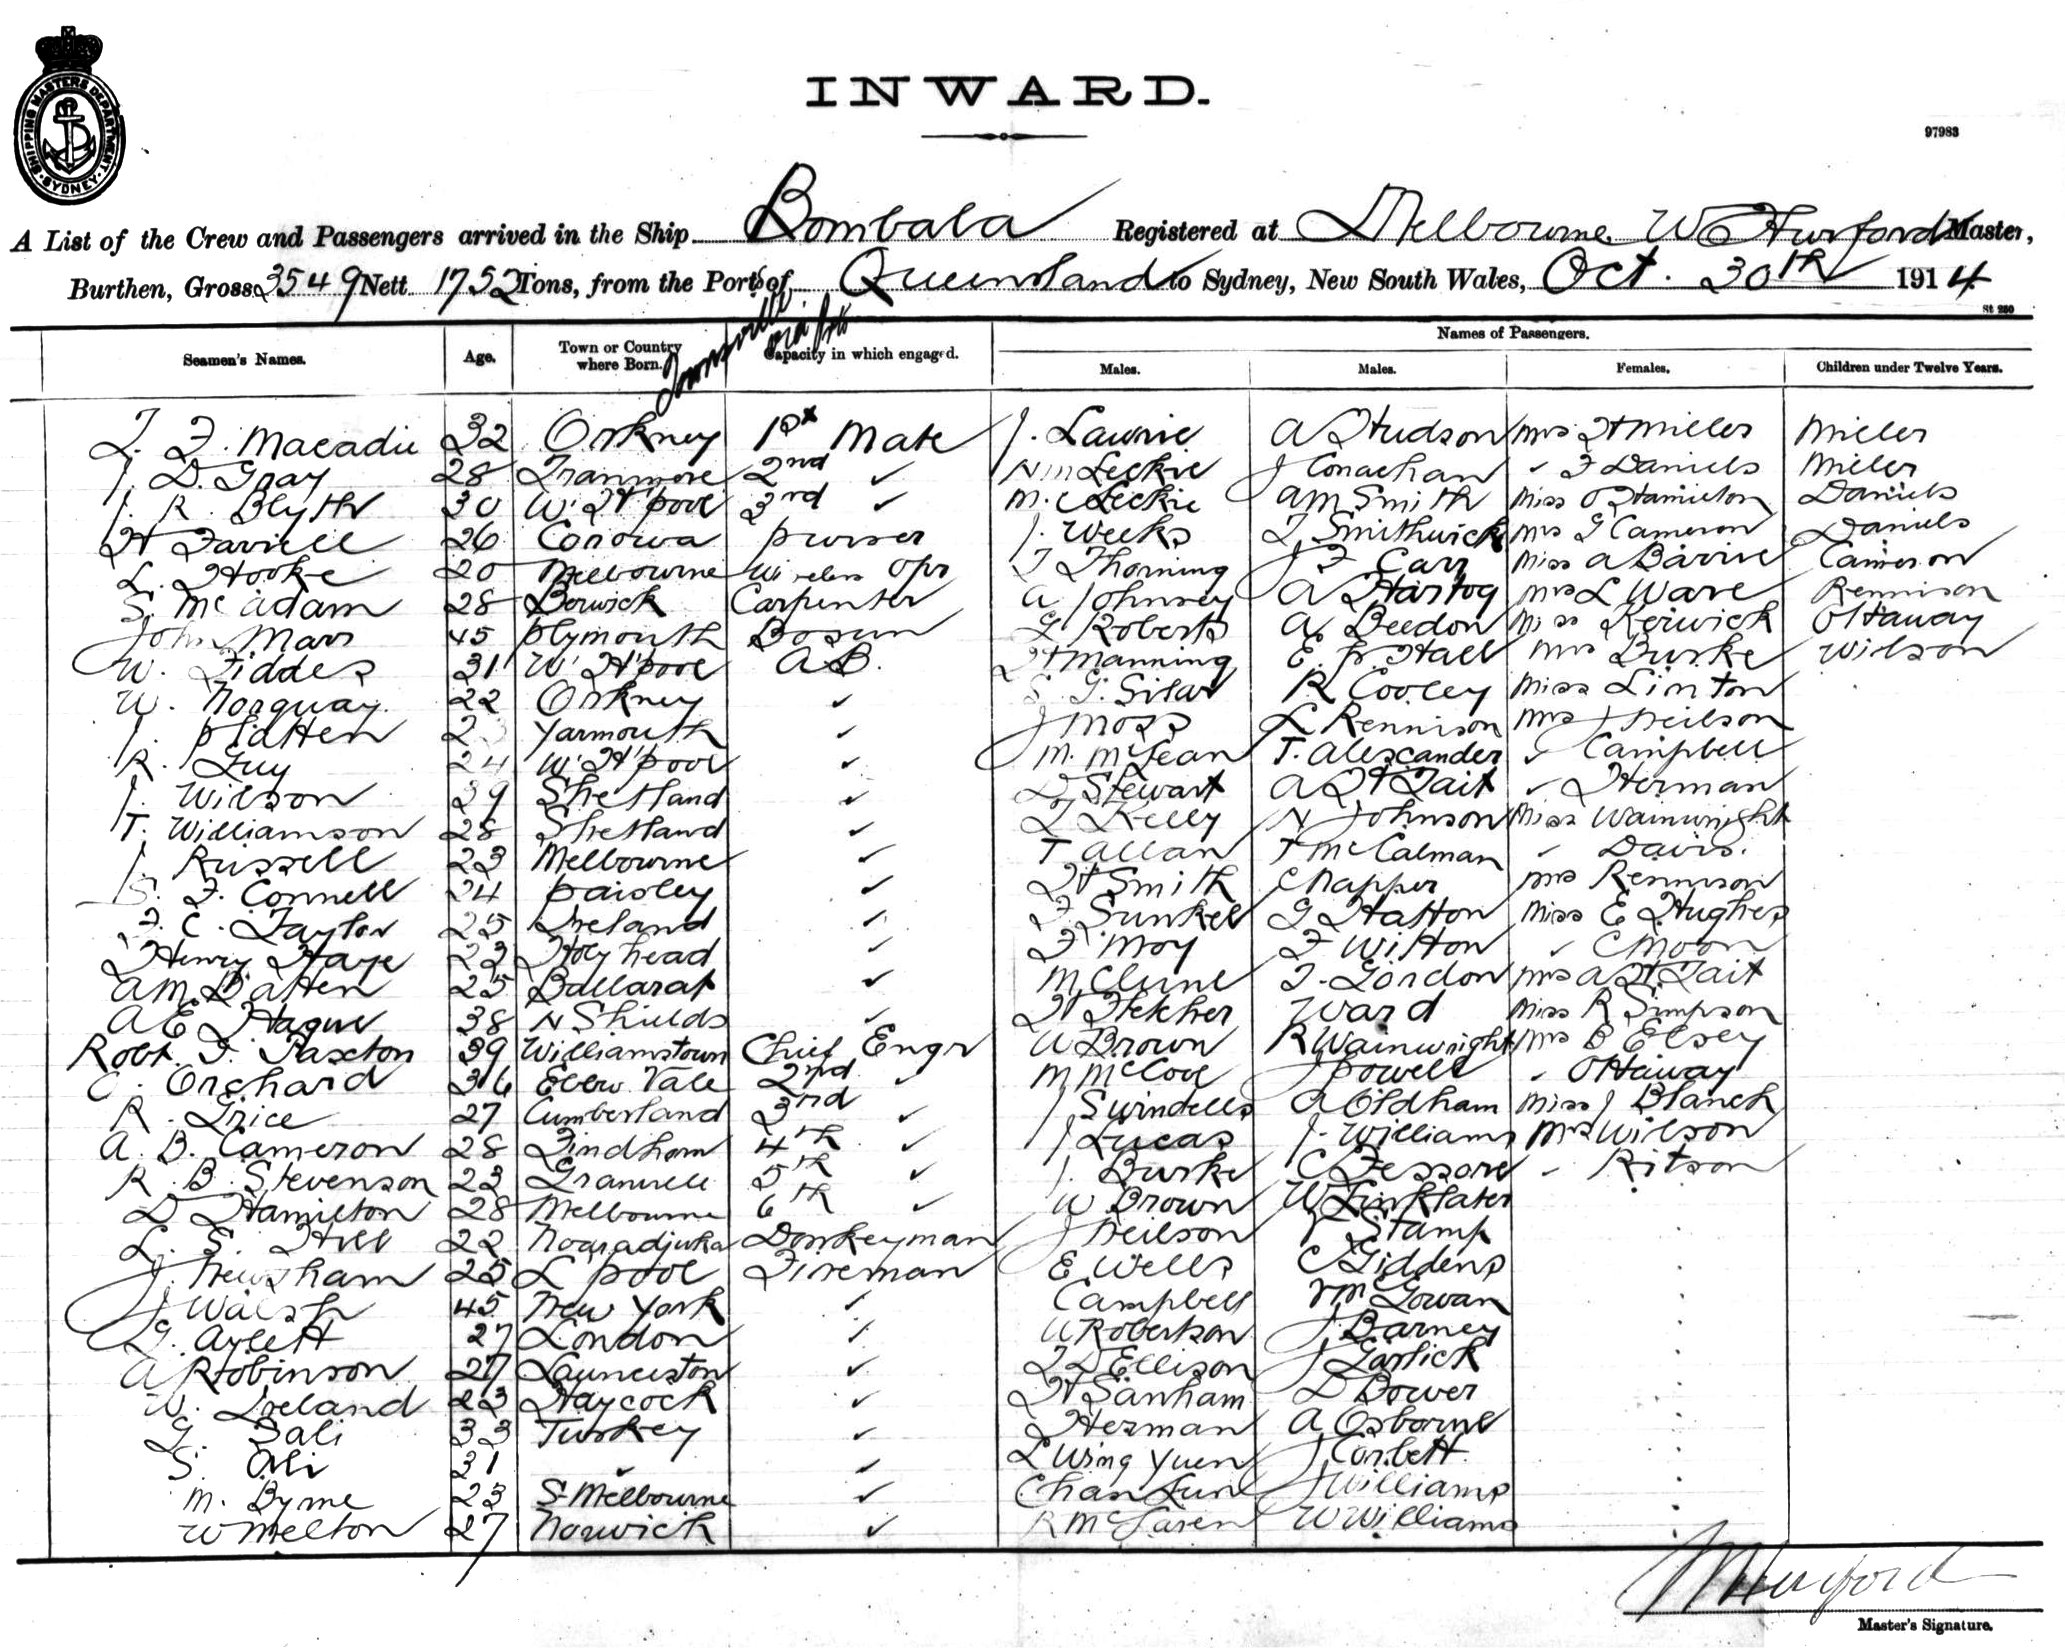 SHIPPING MASTERS DEPARTMENT. SYDNEY.
INWARD.
97983
A List of the Crew and Passengers arrived in the Ship Bombala Registered at Melbourne W Hurford Master,
Burthen, Gross 3549 Nett 1752 Tons, from the Ports of Queensland to Sydney, New South Wales, Oct. 30th 1914
Townsville via
St 250
Names of Passengers.
Seamen's Names. Age. Town or Country where Born. Capacity in which engaged. Males. Males. Females. Children under Twelve Years.
Macadie 32 Orkney 1st Mate J. Lawrie A Hudson Mrs H Miller Miller
J. D. Gray 28 Tranmore 2nd ✓ Wm Leckie J Conachan ✓ F Daniels Miller
J. R. Blyth 30 W. H'pool 3rd ✓ M. Leckie A M Smith Miss O Hamilton Daniels
H Farrell 26 Corowa Purser J. Weeks T Smithwick Mrs G Cameron Daniels
L. Hooke 20 Melbourne Wireless Opr T Thorning J F Carr Miss A Barrie Cameron
S. McAdam 28 Berwick Carpenter A Johnsey A Hartog Mrs L Ware Rennison
John Marr 45 Plymouth Bosun G Roberts A Beedon Miss Kerwick Ottaway
W. Fiddes 31 W. H'pool A.B. H Manning E. P Hall Mrs Burke Wilson
W. Norquay 22 Orkney ✓ G. Silar R Cooley Miss Linton
J. Platten 2 Yarmouth ✓ J Moss L Rennison Mrs J Neilson
R. Guy 24 W. H'pool ✓ M. McLean T. Alexcander ✓ Campbell
J. Wilson 39 Shetland ✓ D Stewart A H Tait ✓ Herman
T. Williamson 28 Shetland ✓ T Kelly N Johnson Miss Wainwright
J. Russell 23 Melbourne ✓ T Allan T McCalman ✓ Davis.
S. F. Connell 24 Paisley ✓ H Smith C Napper Mrs Rennison
F. C. Taylor 25 Ireland ✓ F. Sunkel G Hatton Miss E Hughes
Henry Haye 23 Holyhead ✓ F Moy F Wilton ✓ C Moon
A M Batten 25 Ballarat ✓ M Clune T. Gordon Mrs A H Tait
A E Hague 38 N Shields ✓ H Fletcher Ward Miss R Simpson
Robt. F. Paxton 39 Williamstown Chief Engr W Brown R Wainwright Mrs B Elsey
C. Orchard 36 Ebbw Vale 2nd ✓ M McCool J Powell ✓ Ottaway
R. Grice 27 Cumberland 3rd ✓ J Swindells A Oldham Miss J Blanch
A. B. Cameron 28 Findhorn 4th ✓ J Lucas J. Williams Mrs Wilson
R. B. Stevenson 23 5th ✓ J. Burke C Fessore ✓ Ritson
D Hamilton 28 Melbourne 6th ✓ W Brown W Linklater
L. S. Hill 22 Donkeyman J Neilson V Stamp
J. Newsham 25 L'pool Fireman E Wells C Giddens
J Walsh 45 New York ✓ Campbell McGowan
G. Aylett 27 London ✓ W Robertson J Barney
A Robinson 27 Launceston ✓ T D Ellison J Garlick
W. Ireland 23 Haycock ✓ H Sanham D Bower
G. Bali 33 Turkey ✓ Herman A Osborne
S. Ali 31 ✓ ✓ L Wing Yuen J Corbett
M. Byrne 23 S. Melbourne ✓ Chan Lun J Williams
W Melton 27 Norwich ✓ R McLaren W Williams
W Hurford
Master's Signature.